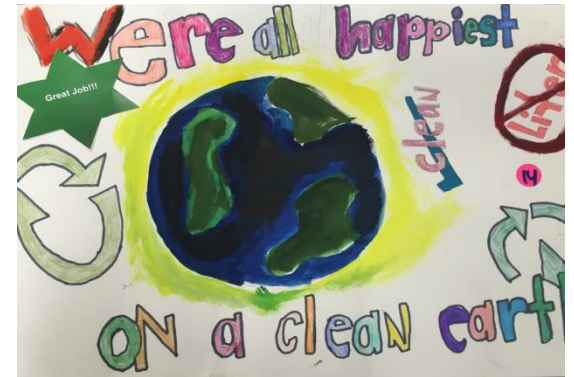 Were all happiest
Great Job!!!
clean
Litter
14
on a clean earth